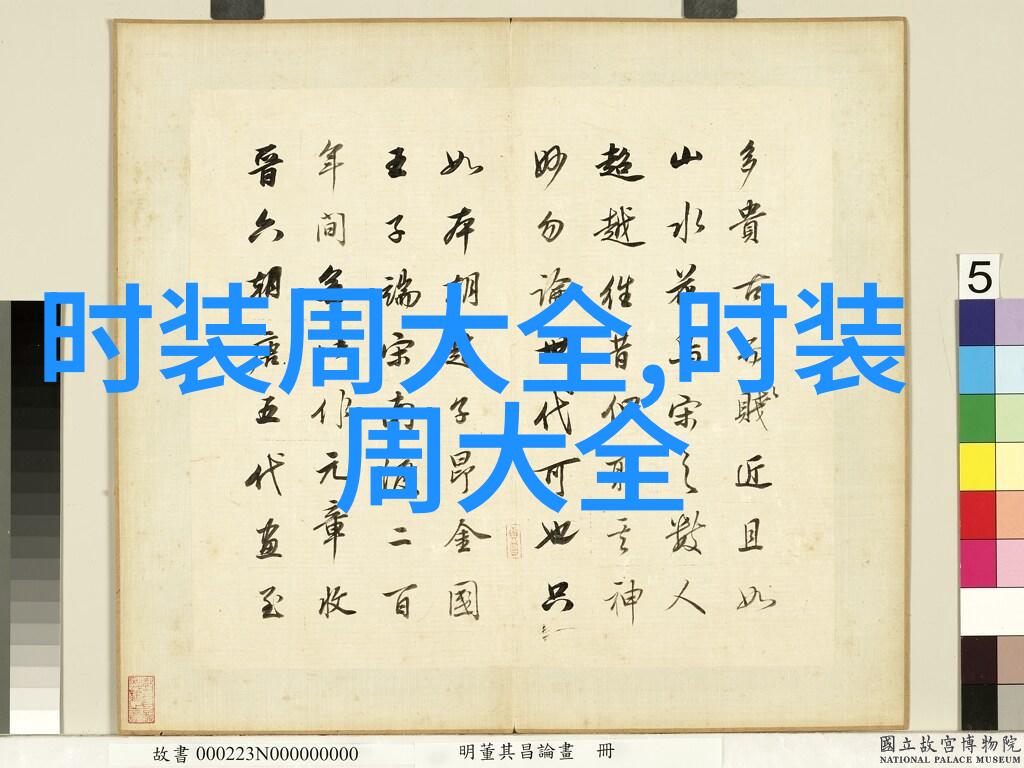 时装周大全,时装
周大全
多貴古賤近且如
山水花宋之數人
超越往昔但取其神
妙勿論世代可也只
如本朝趙子昂金國
王子端宋南渡二百
年間無此作元章收
晉六朝唐五代畫至
5
故書 000223N000000000
明董其昌論畫 冊
國立故宮博物院
NATIONAL PALACE MUSEUM